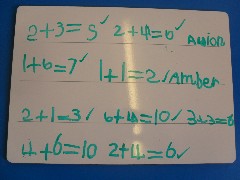 2+3=5✓ 2+4=6✓
1+6=7✓ 1+1=2✓ Amber
2+1=3✓ 6+4=10✓ 3+3=6
4+6=10 2+4=6✓